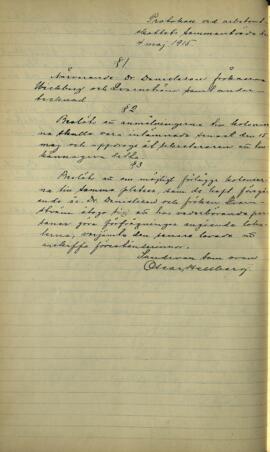 Protokoll vid arbetsut-
skottets sammanträde den
4 maj 1915.
§1
Närvarande Dr. Danielsson fröknarna
och samt under-
tecknad
§2
Beslöt att anmälningarna till kolonier-
na skulle vara inlämnade senast den 15
maj och uppdrogs åt sekreteraren att
kännagiva detta.
§3
Beslöt att om möjligt förlägga kolonier-
na till samma platser, som de haft föregå-
ende år. Dr. Danielsson och fröken
åtogo sig att hos vederbörande per-
soner göra förfrågningar angående loka-
lerna, varjämte den senare lovade att
anskaffa föreståndarinnor.
Sandviken som ovan
Oscar Hellberg